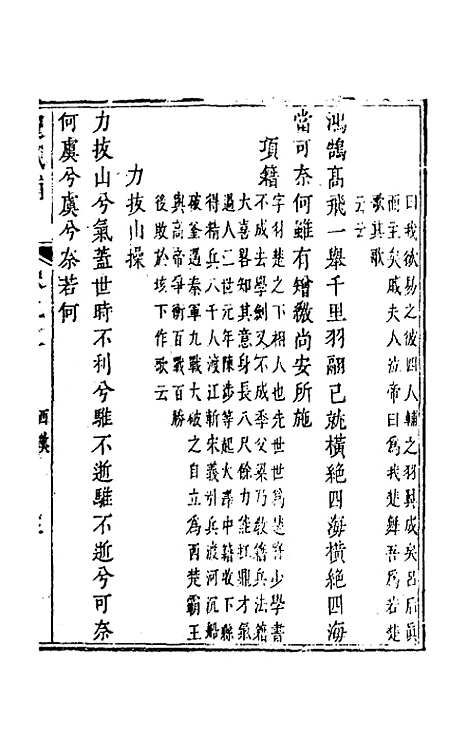 曰我欲易之彼四人輔之羽翼成矣呂后眞
而主矣戚夫人泣帝曰爲我楚舞吾爲若楚
歌其歌
云云
鴻鵠高飛一舉千里羽翮已就橫絶四海橫絶四海
當可奈何雖有矰繳尚安所施
項籍
字羽楚之下相人也先世世爲楚將少學書
不成去學劍又不成季父梁乃敎籍兵法籍
大喜畧知其意身長八尺餘力能扛鼎才氣
過人二世元年陳涉等起大澤中籍收下縣
得精兵八千人渡江斬宋義引兵渡河沉船
破釜遇秦軍九戰大破之自立爲西楚霸王
與高帝爭衡百戰百勝
後敗於垓下作歌云
力拔山操
力拔山兮氣蓋世時不利兮騅不逝騅不逝兮可奈
何虞兮虞兮奈若何
西漢